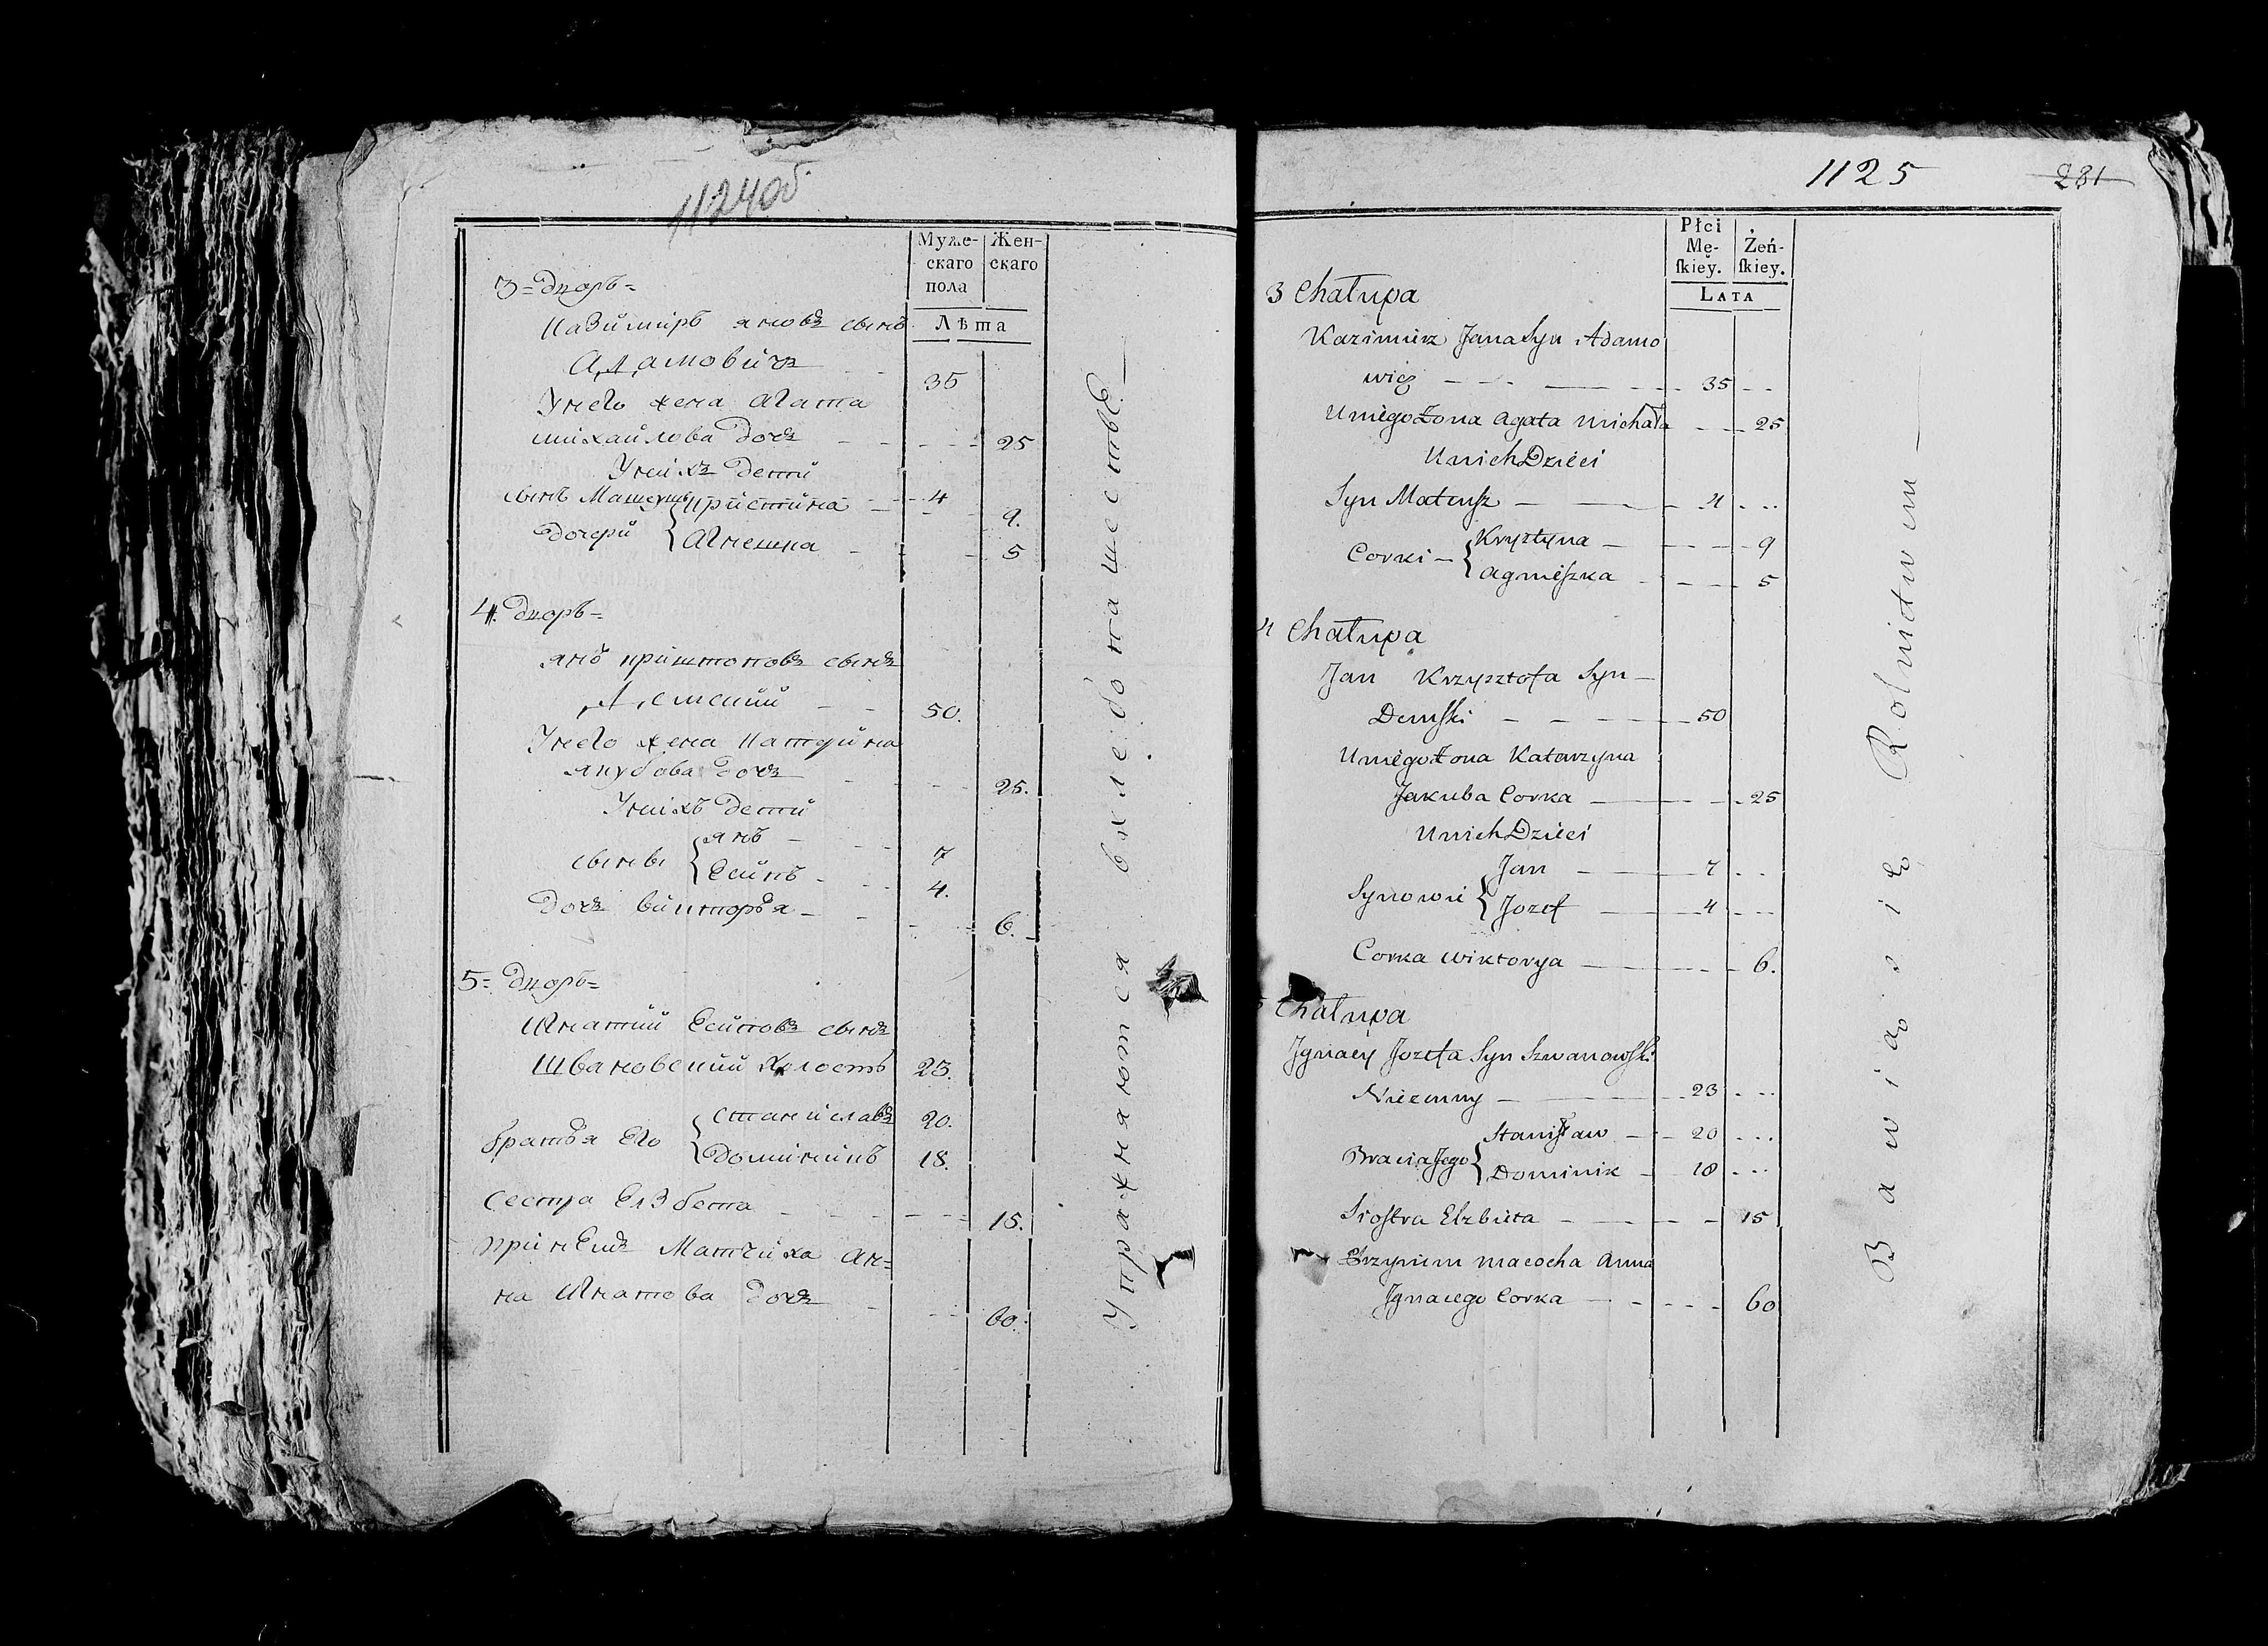 1124об
Муже- Жен-
скаго скаго
пола
Лѣта
3 = дворъ =
Казимиръ яновъ сынъ
Адамовичъ - - 35
У него жена Агата
михайлова дочь - - - - 25
У нихъ дети
сынъ Матеушъ - - - 4
дочери { Кристина - - - 9.
Агнешка - - - 5
4. дворъ =
янъ криштоповъ сынъ
Демский - - 50.
У него жена Катерина
якубова дочь - - - 25.
У нихъ дети
сыновья { янъ - - - 7
Есипъ - - - 4.
дочь викторья - - - - 6.
5 = дворъ =
Игнатий Есиповъ сынъ
Швановский холостъ 23.
братья его { Станиславъ 20.
Доминикъ 18.
сестра Елзбета - - - - 15.
при нихъ Матчиха Ан=
на Игнатова дочь - - - 60.
Упражняются в хлебопашестве. —
1125 281
Płci
Mę- Żeń-
ſkiey. ſkiey.
LATA
3 Chałupa
Kazimierz Jana Syn Adamo
wicz - - - - 35 - -
U niego Żona Agata Michała - - 25
U nich Dzieci
Syn Mateuſz - - - 4 - - -
Corki - { Krysztyna - - - - 9
Agnieszka - - - - 5
4 Chałupa
Jan Krzysztofa Syn -
Demſki - - - - - 50
U niego Żona Katarzyna
Jakuba Corka - - - 25
U nich Dzieci
Synowie { Jan - - 7 - -
Jozef - - 4 - - -
Corka Wiktorya - - - - 6.
Chałupa
Jgnacy Jozefa Syn Szwanowſki
Niezenny - - 23 - - -
Bracia Jego { Staniſław - - 20 - - -
Dominik - 18 - - -
Sioſtra Elzbieta - - - - 15
Przy nim macocha Anna
Jgnacego Corka - - - - - 60
Bawią się Rolnictwem —